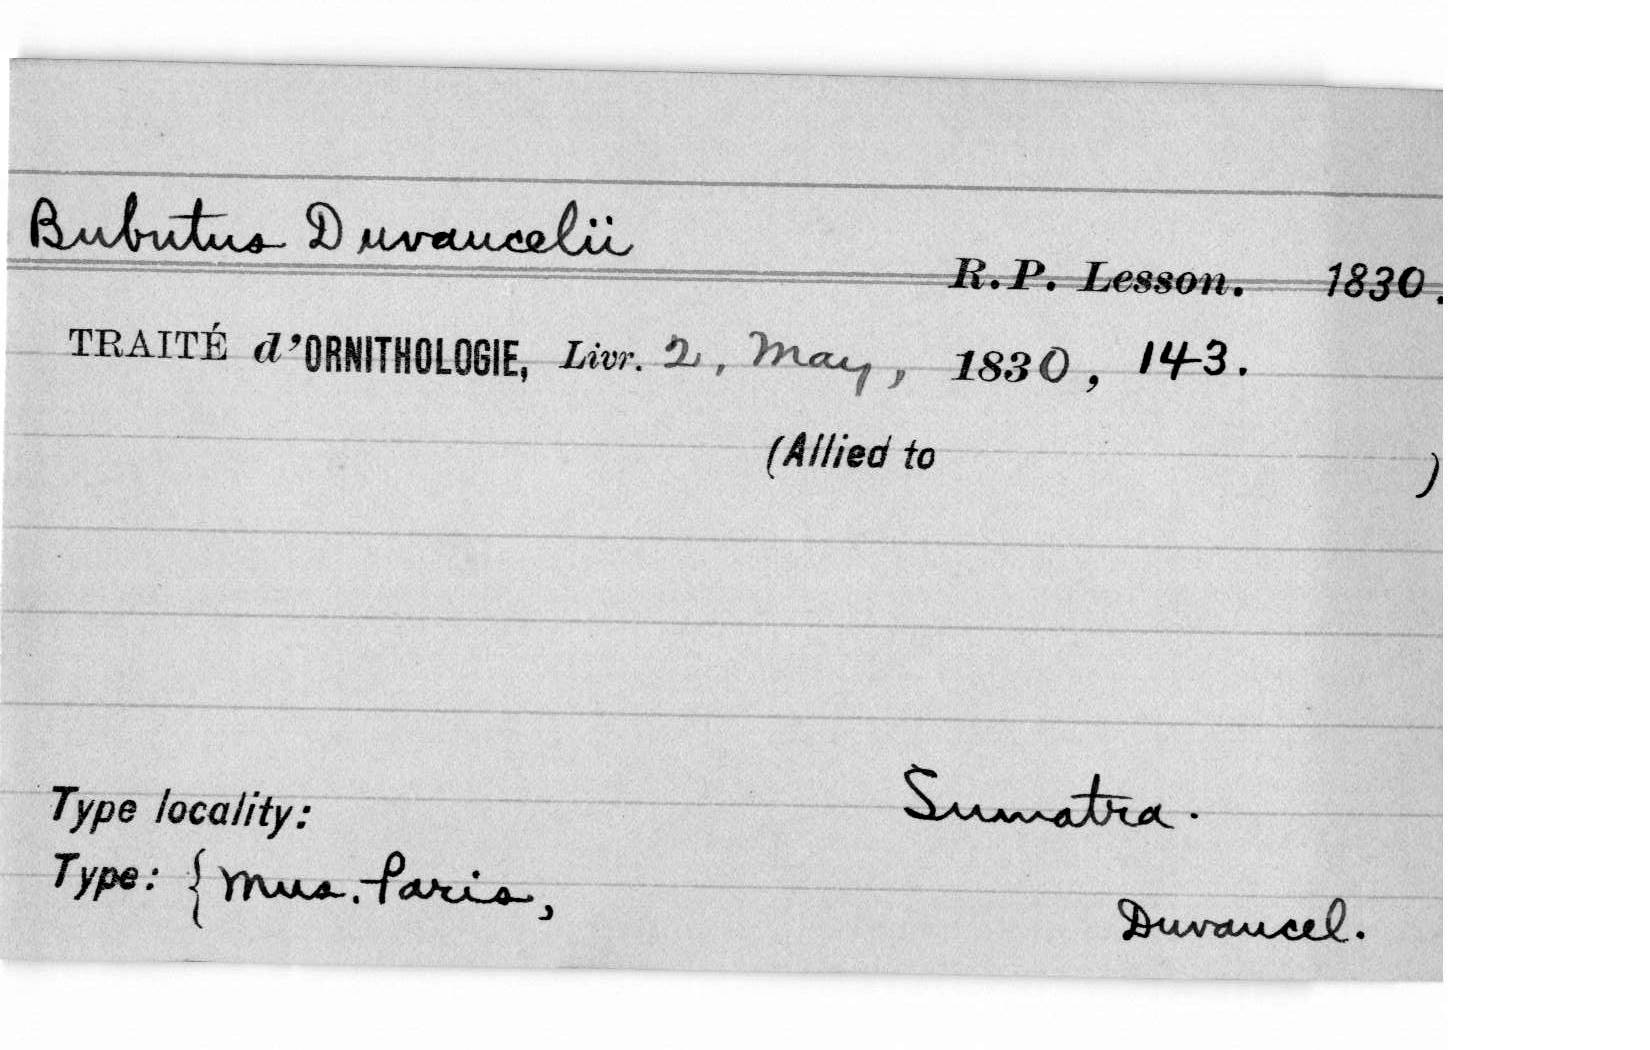 Bubutus Duvaucelii
R.P. Lesson. 1830.
TRAITÉ d'ORNITHOLOGIE, Livr. 2, May, 1830, 143.
(Allied to )
Type locality: Sumatra.
Type: { Mus. Paris,
Duvaucel.